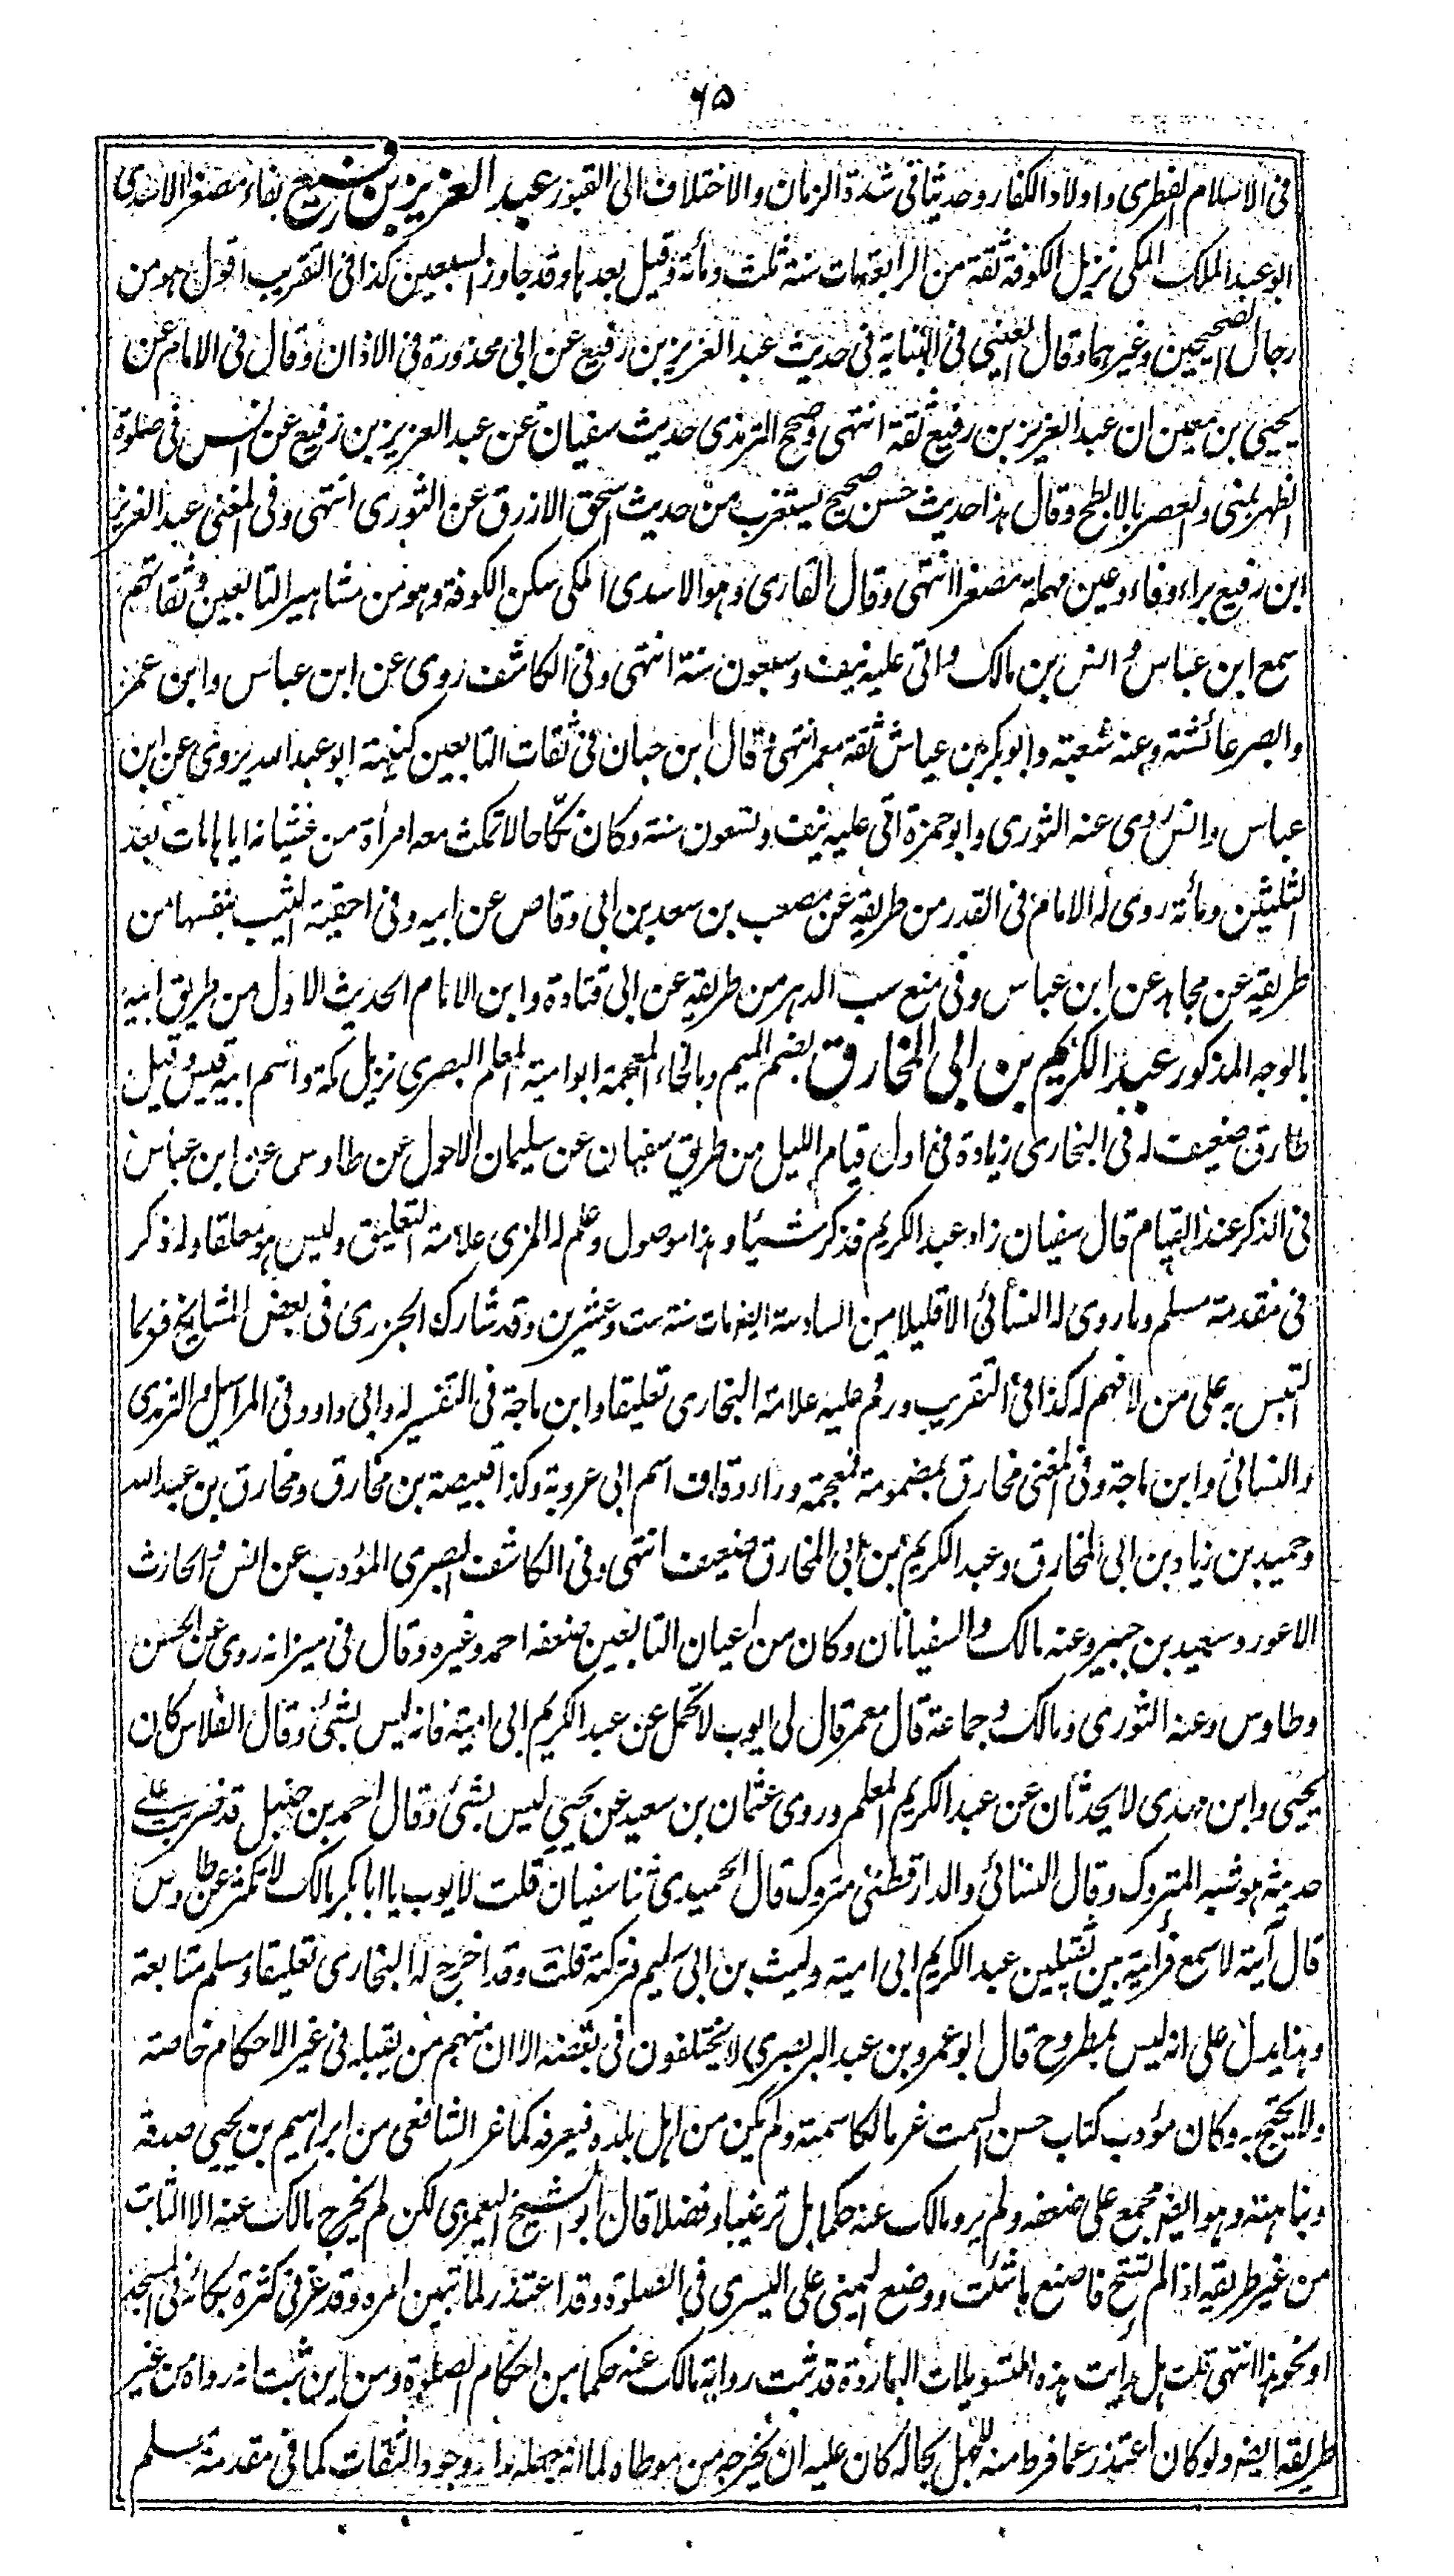 ٦٥
فى الاسلام الفطرى واولاد الكفار وحديثا فى شدة الزمان والاختلاف الى القبور عبد العزيز بن رفيع بفاء مصغرا الاسدى
ابو عبد الملك المكى نزيل الكوفة ثقة من الرابعة مات سنة ثلث ومأئة وقيل بعدها وقد جاوز السبعين كذا فى التقريب اقول هو من
رجال الصحيحين وغيرهما وقال العينى فى البناية فى حديث عبد العزيز بن رفيع عن ابى محذورة فى الاذان وقال فى الامام عن
يحيى بن معين ان عبد العزيز بن رفيع ثقة انتهى وصحح الترمذى حديث سفيان عن عبد العزيز بن رفيع عن انس فى صلوة
الظهر بمنى والعصر بالابطح وقال هذا حديث حسن صحيح يستغرب من حديث اسحق الازرق عن الثورى انتهى وفى المغنى عبد العزيز
ابن رفيع براء وفاء وعين مهملة مصغرا انتهى وقال القارى وهو الاسدى المكى سكن الكوفة وهو من مشاهير التابعين وثقاتهم
سمع ابن عباس وانس بن مالك واتى عليه نيف وسبعون سنة انتهى وفى الكاشف روى عن ابن عباس وابن عمر
والبصر عائشة وعنه شعبة وابو بكر بن عياش ثقة معمر انتهى وقال ابن حبان فى ثقات التابعين كنيته ابو عبد الله يروى عن ابن
عباس وانس روى عنه الثورى وابو حمزة اتى عليه نيف وتسعون سنة وكان نكاحا لا تمكث معه امرأة من غشيانه اياها مات بعد
الثلثين ومأئة روى له الامام فى القدر من طريقه عن مصعب بن سعد بن ابى وقاص عن ابيه وفى احقية الثيب بنفسها من
طريقه عن مجاهد عن ابن عباس وفى منع سب الدهر من طريقه عن ابى قتادة وابن الامام الحديث الاول من طريق ابيه
بالوجه المذكور عبد الكريم بن ابى المخارق بضم الميم وبالخاء المعجمة ابو امية المعلم البصرى نزيل مكة واسم ابيه قيس وقيل
طارق ضعيف له فى البخارى زيادة فى اول قيام الليل من طريق سفيان عن سليمان الاحول عن طاوس عن ابن عباس
فى الذكر عند القيام قال سفيان زاد عبد الكريم فذكر شيئا وهذا موصول وعلم له المزى علامة التعليق وليس هو معلقا وله ذكر
فى مقدمة مسلم وما روى له النسائى الا قليلا من السادسة ايضا مات سنة ست وعشرين وقد شارك الجزرى فى بعض المشايخ فربما
التبس به على من لا فهم له كذا فى التقريب ورقم عليه علامة البخارى تعليقا وابن ماجة فى التفسير له وابى داود فى المراسيل والترمذى
والنسائى وابن ماجة وفى المغنى مخارق بمضمومة فمعجمة وراء وقاف اسم ابى عروبة وكذا قبيصة بن مخارق ومخارق بن عبد الله
وحميد بن زياد بن ابى المخارق وعبد الكريم بن ابى المخارق ضعيف انتهى وفى الكاشف البصرى المؤدب عن انس والحارث
الاعور وسعيد بن جبير وعنه مالك والسفيانان وكان من اعيان التابعين ضعفه احمد وغيره وقال فى ميزانه روى عن الحسن
وطاوس وعنه الثورى ومالك وجماعة قال معمر قال لى ايوب لا تحمل عن عبد الكريم ابى امية فانه ليس بشئ وقال الفلاس كان
يحيى وابن مهدى لا يحدثان عن عبد الكريم المعلم وروى عثمان بن سعيد عن يحيى ليس بشئ وقال احمد بن حنبل قد ضربت على
حديثه هو شبه المتروك وقال النسائى والدارقطنى متروك قال الحميدى ثنا سفيان قلت لايوب يا ابا بكر مالك لا تكثر عن طاوس
قال آتيه لاسمع فرأيته بين ثقيلين عبد الكريم ابى امية وليث بن ابى سليم فتركته قلت وقد اخرج له البخارى تعليقا ومسلم متابعة
وهذا يدل على انه ليس بمطروح قال ابو عمرو بن عبد البر بصرى لا يختلفون فى ضعفه الا ان منهم من يقبله فى غير الاحكام خاصة
ولا يحتج به وكان مؤدب كتاب حسن السمت غر مالكا سمته ولم يكن من اهل بلده فيعرفه كما غر الشافعى من ابراهيم بن يحيى صدقه
ونباهته وهو ايضا مجمع على ضعفه ولم يرو مالك عنه حكما بل ترغيبا وفضلا قال ابو الشيخ اليعمرى لكن لم يخرج مالك عنه الا الثابت
من غير طريقه اذا لم تستح فاصنع ما شئت ووضع اليمنى على اليسرى فى الصلوة وقد اعتذر لما تبين امره وقد غرنى كثرة بكائه فى المسجد
او نحو هذا انتهى قلت هل رايت هذه التسويلات الباردة قد ثبت رواية مالك عنه حكما من احكام الصلوة ومن اين ثبت انه رواه من غير
طريقه ايضا ولو كان اعتذر عما فرط منه للجهل بحاله كان عليه ان يخرجه من موطاه لما انه جعله مدار وجود الثقات كما فى مقدمة مسلم